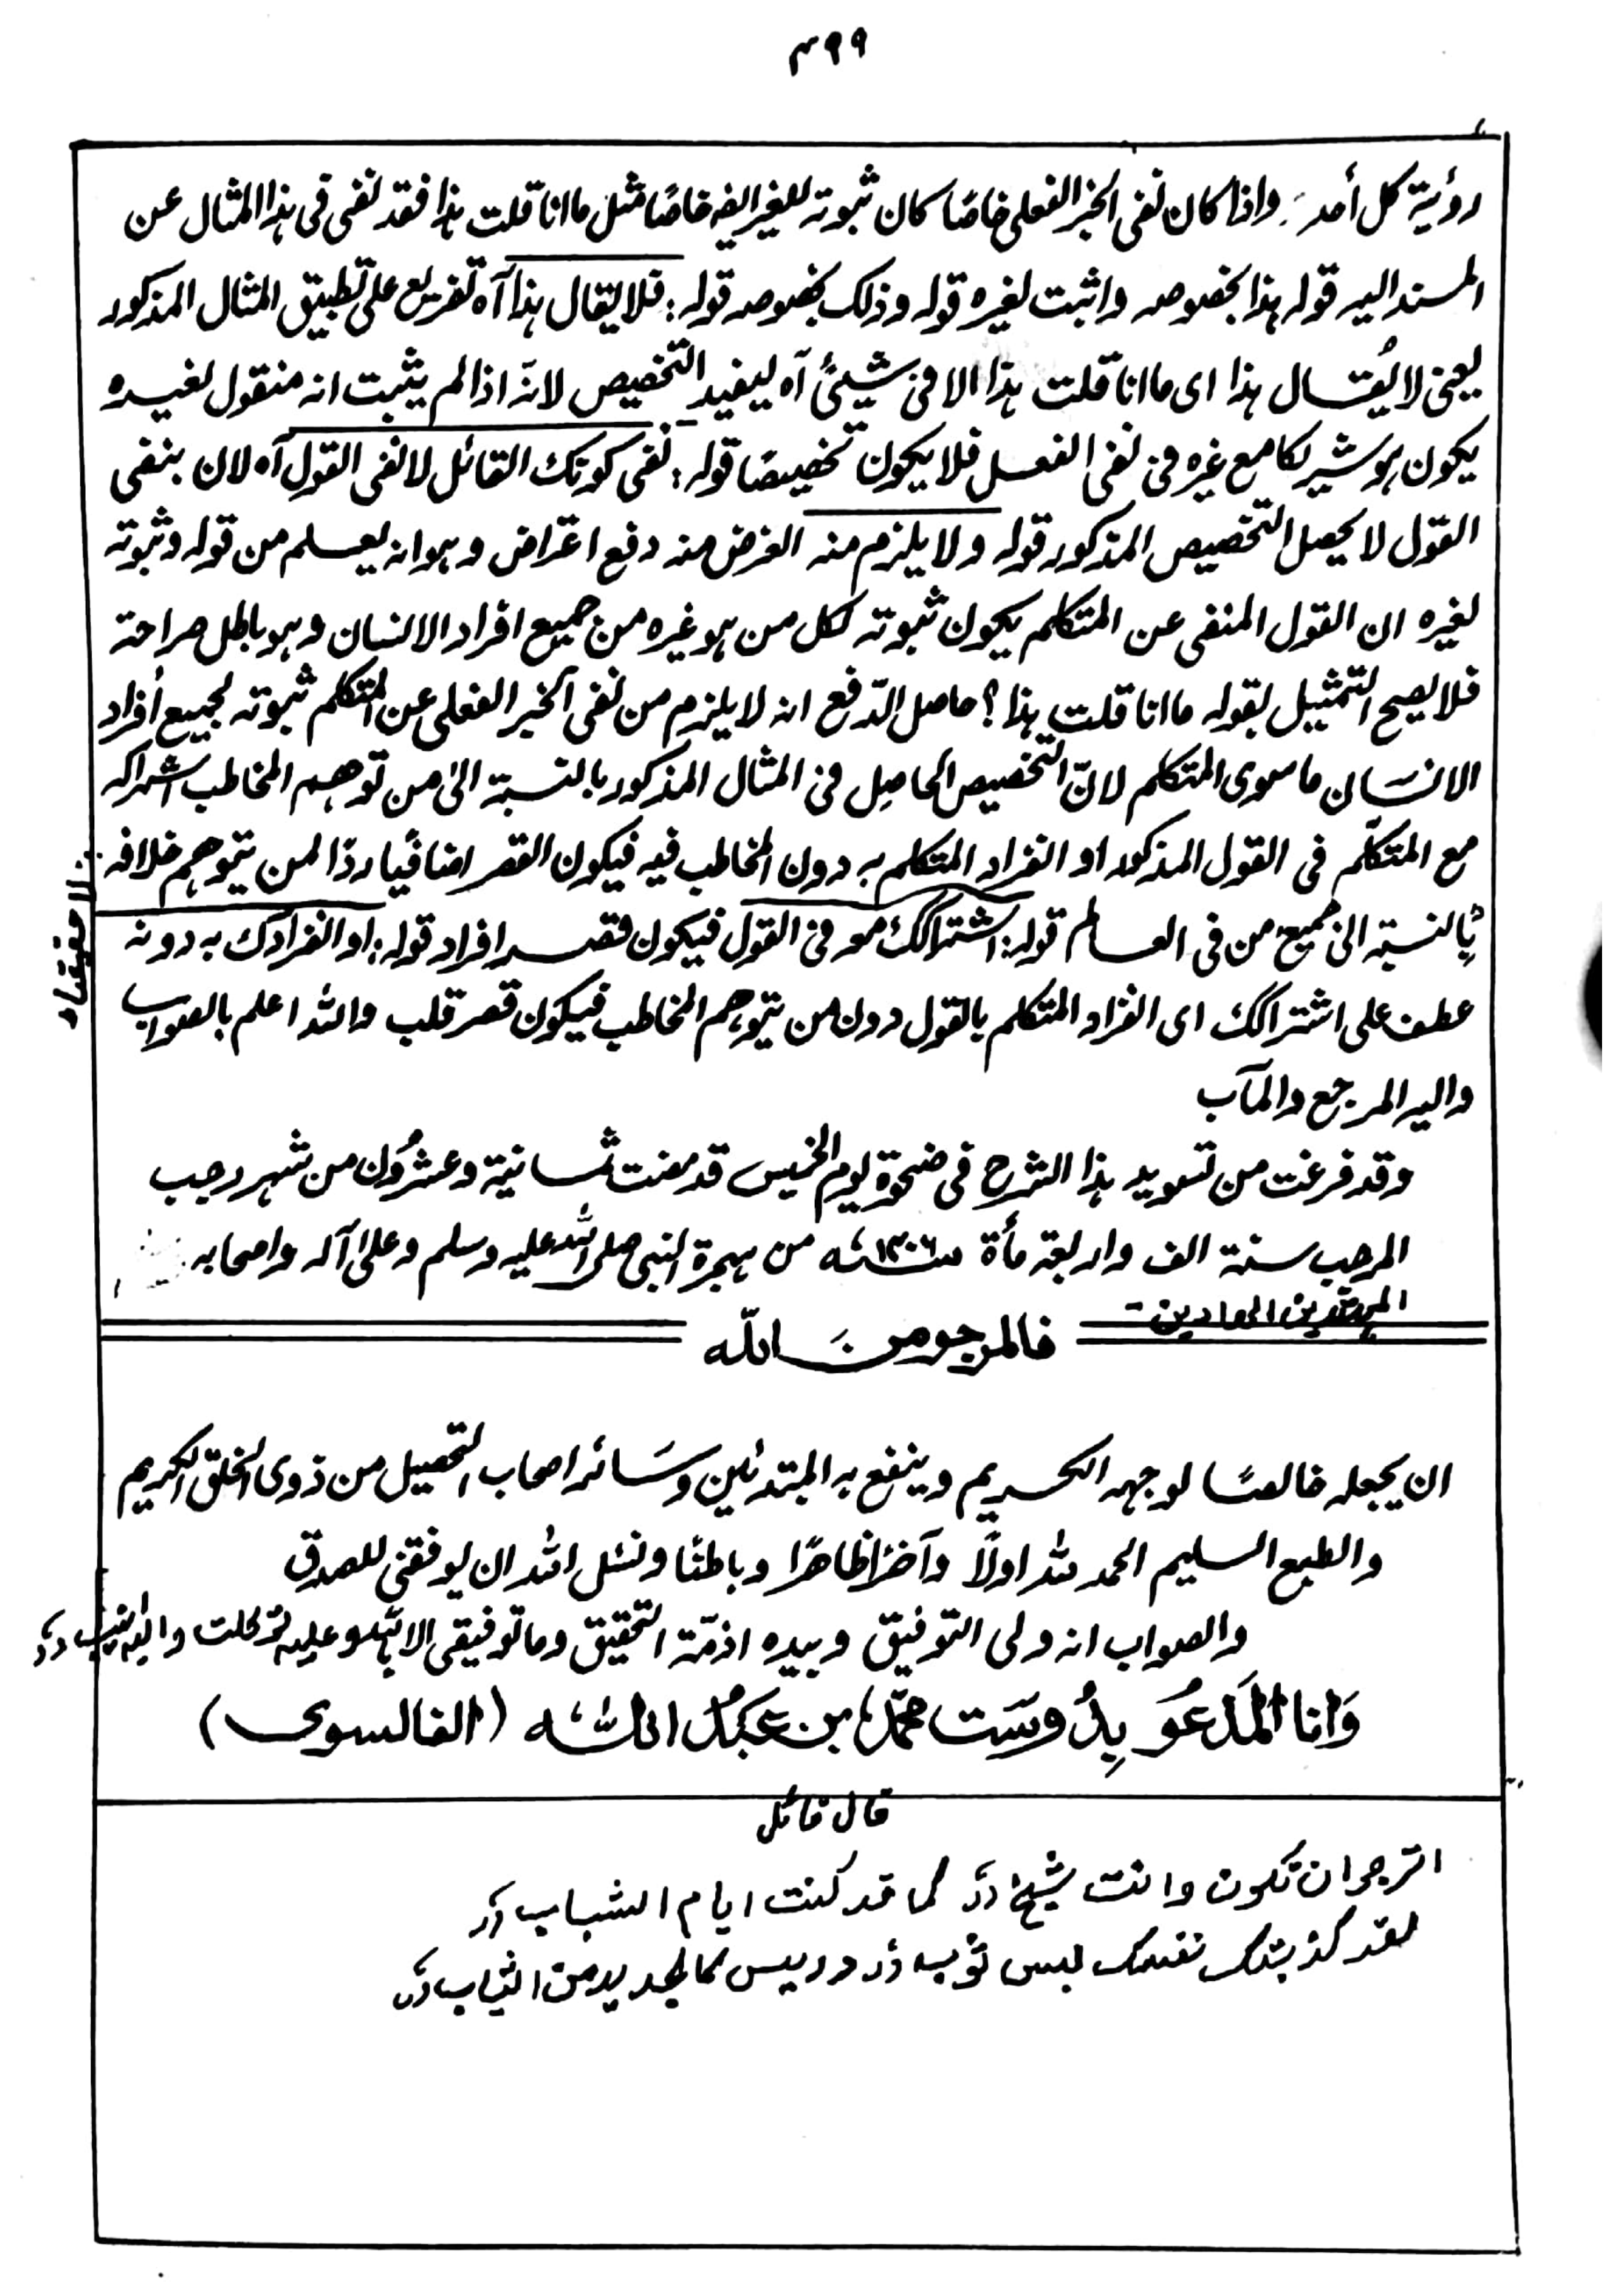 ٣٩٩
رؤية كل أحد، واذا كان نفى الخبر الفعلى خاصًا كان ثبوته للغير ايضا خاصًا مثل ما انا قلت هذا فقد نفى فى هذا المثال عن
المسند اليه قوله هذا بخصوصه واثبت لغيره قوله وذلك بخصوصه قوله: فلا يقال هذا آه تفريع على تطبيق المثال المذكور
يعنى لا يُقال هذا اى ما انا قلت هذا الا فى شيئ آه ليفيد التخصيص لانّه اذا لم يثبت انه منقول لغيره
يكون هو شريكا مع غيره فى نفى الفعل فلا يكون تخصيصًا قوله: نفى كونك القائل لا نفى القول آه لان بنفى
القول لا يحصل التخصيص المذكور قوله ولا يلزم منه الغرض منه دفع اعتراض وهو انه يعلم من قوله وثبوته
لغيره ان القول المنفى عن المتكلم يكون ثبوته لكل من هو غيره من جميع افراد الانسان وهو باطل صراحة
فلا يصح التمثيل بقوله ما انا قلت هذا؟ حاصل الدّفع انه لا يلزم من نفى الخبر الفعلى عن المتكلم ثبوته لجميع أفراد
الانسان ما سوى المتكلم لانّ التخصيص الحاصل فى المثال المذكور بالنسبة الىٰ من توهم المخاطب اشتراكه
مع المتكلّم فى القول المذكور او انفراد المتكلم به دون المخاطب فيه فيكون القصر اضافيا ردّا لمن يتوهم خلافه
بالنسبة الىٰ جميع من فى العالم قوله: اشتراكك معه فى القول فيكون قصر افراد قوله: او انفرادك به دونه
عطف على اشتراكك اى انفراد المتكلم بالقول دون من يتوهم المخاطب فيكون قصر قلب والله اعلم بالصواب
واليه المرجع والمآب
وقد فرغت من تسويد هذا الشرح فى ضحوة يوم الخميس قد مضت ثمانية وعشرُون من شهر رجب
المرجب سنة الف واربعة مأة سنة ١٤٠٦ه من هجرة النبى صلى الله عليه وسلم وعلىٰ آله واصحابه
المهتدين الهادين-
فالمرجو منَ الله
ان يجعله خالصًا لوجهه الكريم وينفع به المبتدئين وسَائر اصحاب التحصيل من ذوى الخلق الكريم
والطبع السليم الحمد لله اولًا وآخرًا ظاهرًا وباطنًا ونسئل الله ان يوفقنى للصدق
والصواب انه ولى التوفيق وبيده ازمّة التحقيق وما توفيقى الا بالله عليه توكلت واليه انيب
وَانا المَدعُو بِدُوسَت محمّد بن عَبدُ الله (الفالسوى)
قال قائل
اترجو ان تكون وانت شيخ كما قد كنت ايام الشباب
لقد كذبتك نفسك ليس ثوب دريس كالجديد من الثياب